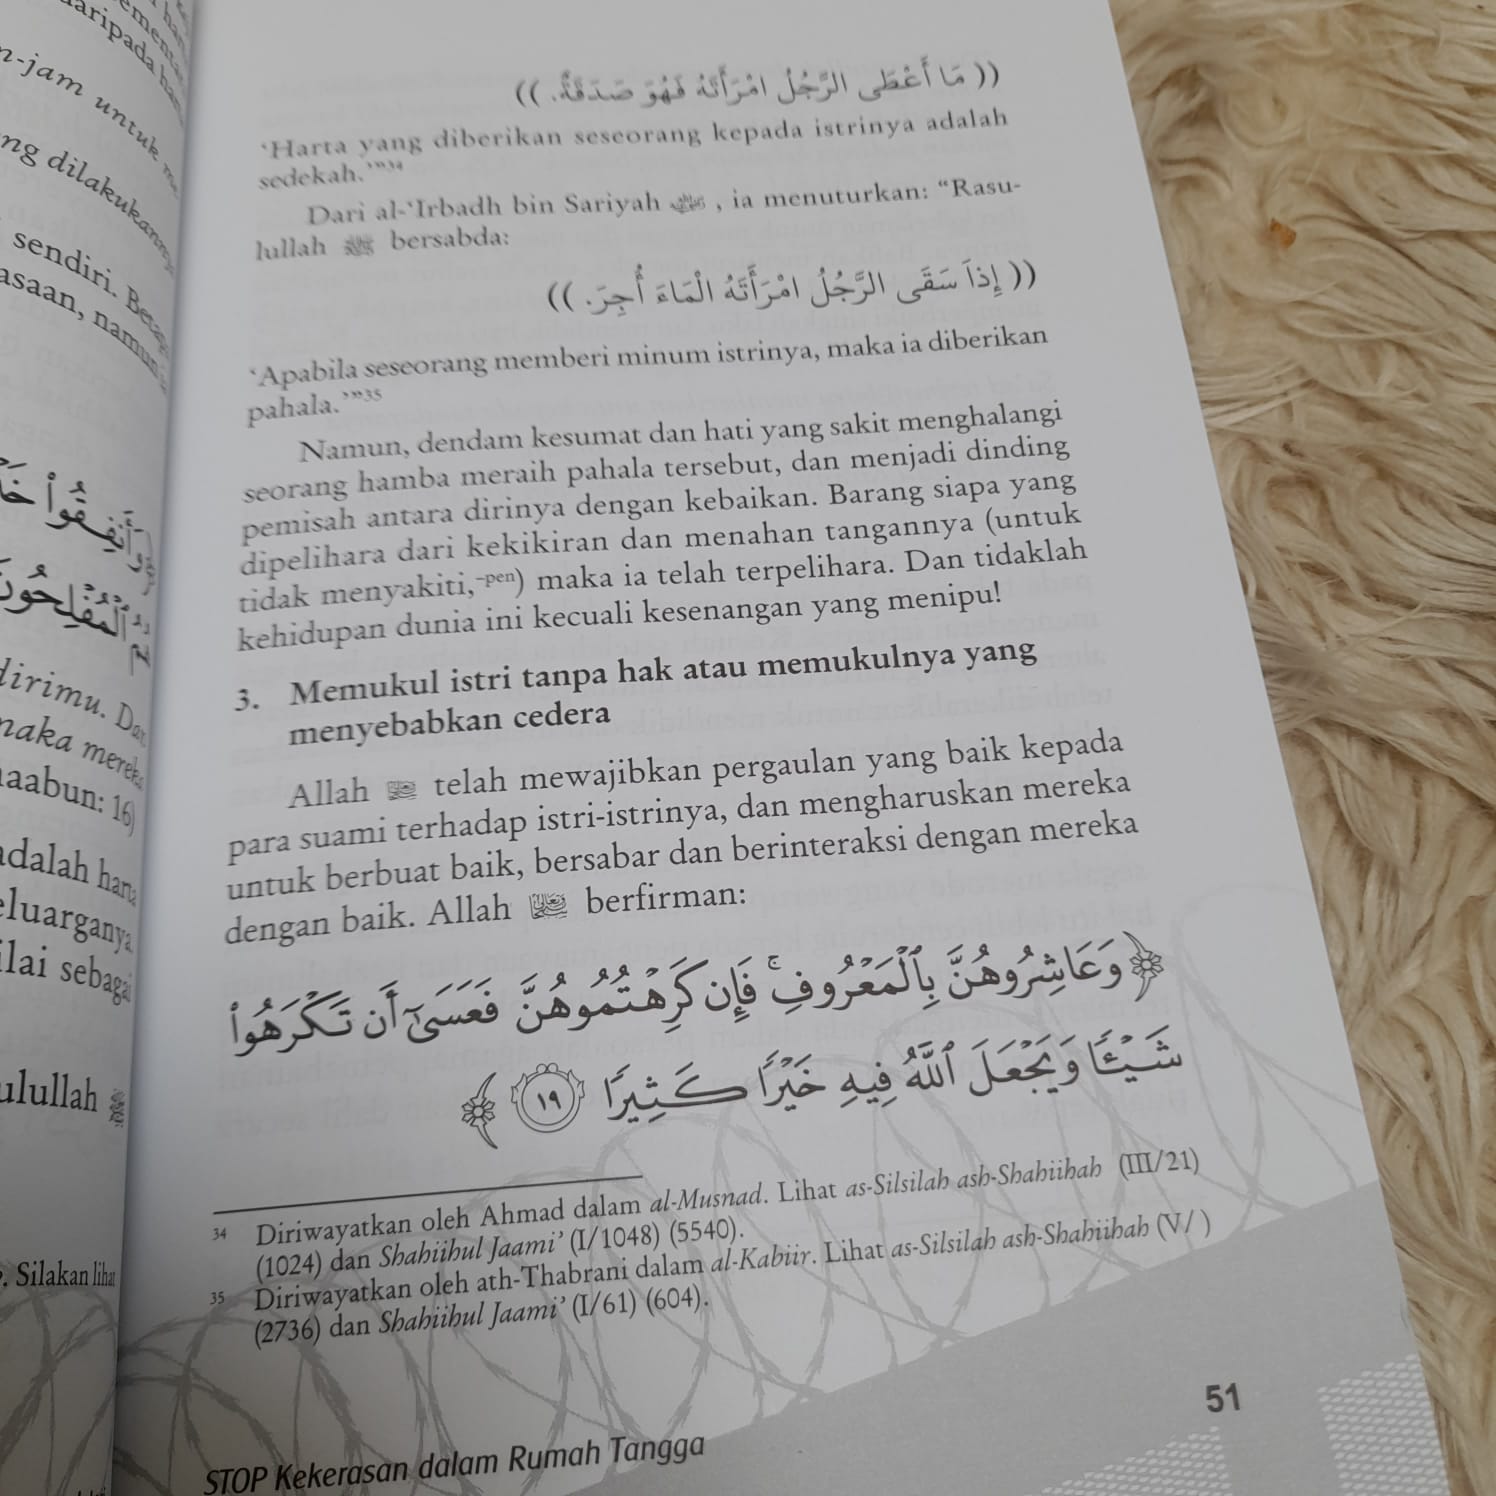 ementa
aripada har
n-jam untuk m
ng dilakukannya
sendiri. Betap
asaan, namun
وَأَنفِقُوا۟ خَ
ٱلْمُفْلِحُونَ
dirimu. Dan
maka mereka
haabun: 16)
adalah harta
eluarganya
ilai sebagai
ulullah ﷺ
. Silakan lihat
(( مَا أَعْطَى الرَّجُلُ امْرَأَتَهُ فَهُوَ صَدَقَةٌ. ))
‘Harta yang diberikan seseorang kepada istrinya adalah
sedekah.’”34
Dari al-‘Irbadh bin Sariyah , ia menuturkan: “Rasu-
lullah ﷺ bersabda:
(( إِذَا سَقَى الرَّجُلُ امْرَأَتَهُ الْمَاءَ أُجِرَ. ))
‘Apabila seseorang memberi minum istrinya, maka ia diberikan
pahala.’”35
Namun, dendam kesumat dan hati yang sakit menghalangi
seorang hamba meraih pahala tersebut, dan menjadi dinding
pemisah antara dirinya dengan kebaikan. Barang siapa yang
dipelihara dari kekikiran dan menahan tangannya (untuk
tidak menyakiti,-pen) maka ia telah terpelihara. Dan tidaklah
kehidupan dunia ini kecuali kesenangan yang menipu!
3. Memukul istri tanpa hak atau memukulnya yang
menyebabkan cedera
Allah telah mewajibkan pergaulan yang baik kepada
para suami terhadap istri-istrinya, dan mengharuskan mereka
untuk berbuat baik, bersabar dan berinteraksi dengan mereka
dengan baik. Allah berfirman:
وَعَاشِرُوهُنَّ بِٱلْمَعْرُوفِ ۚ فَإِن كَرِهْتُمُوهُنَّ فَعَسَىٰٓ أَن تَكْرَهُوا۟
شَيْـًٔا وَيَجْعَلَ ٱللَّهُ فِيهِ خَيْرًا كَثِيرًا ١٩
34 Diriwayatkan oleh Ahmad dalam al-Musnad. Lihat as-Silsilah ash-Shahiihah (III/21)
(1024) dan Shahiihul Jaami’ (I/1048) (5540).
35 Diriwayatkan oleh ath-Thabrani dalam al-Kabiir. Lihat as-Silsilah ash-Shahiihah (V/ )
(2736) dan Shahiihul Jaami’ (I/61) (604).
51
STOP Kekerasan dalam Rumah Tangga